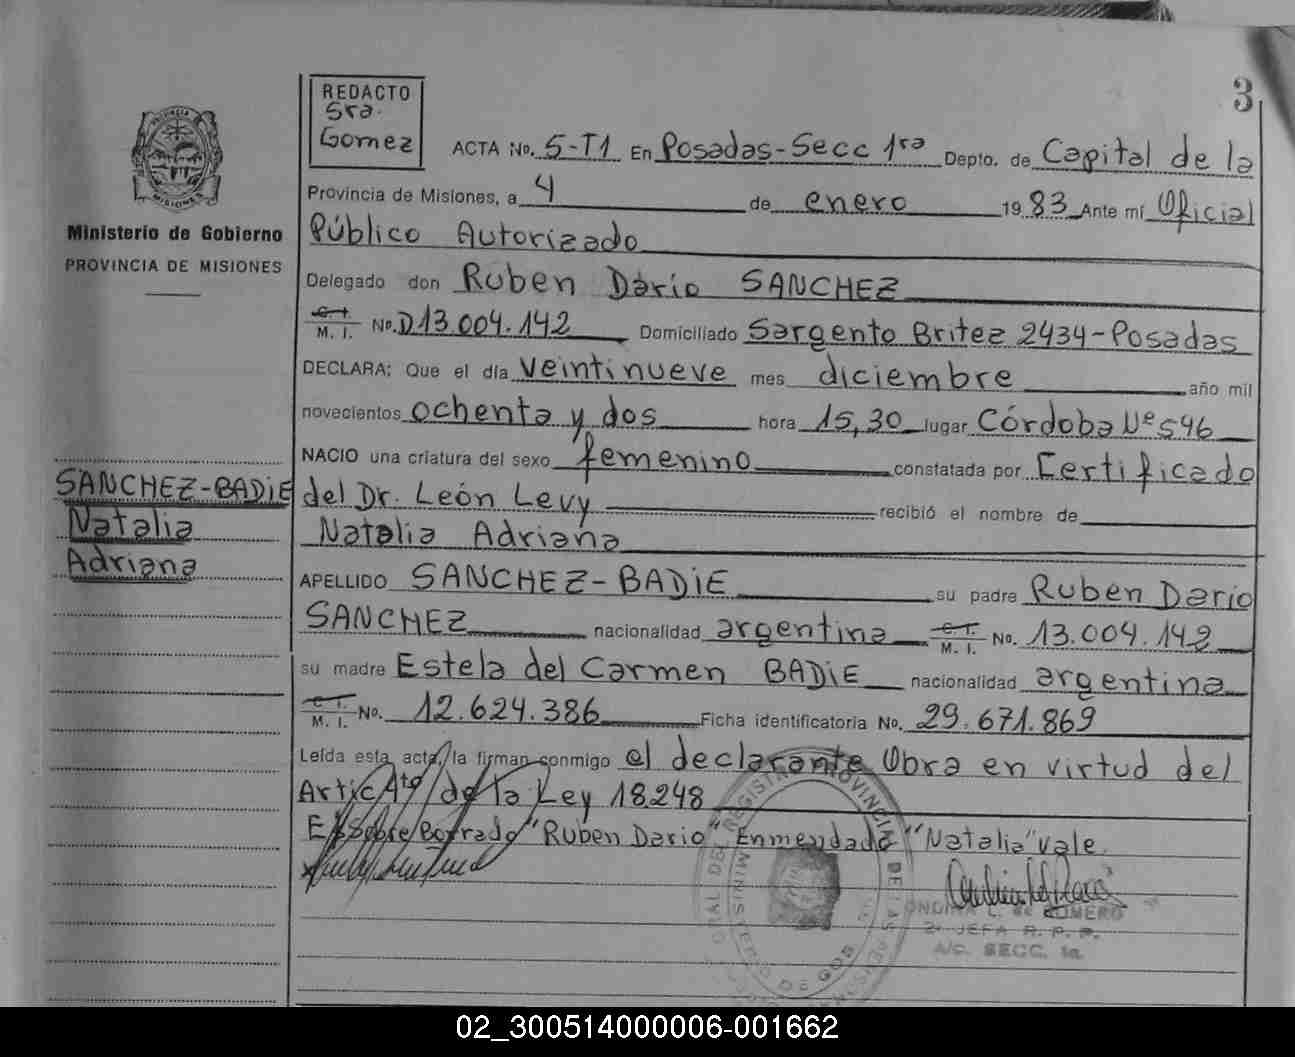 3
REDACTO
Sra.
Gomez
PROVINCIA
MISIONES
Ministerio de Gobierno
PROVINCIA DE MISIONES
ACTA No. 5-T1 En Posadas-Secc 1ra Depto. de Capital de la
Provincia de Misiones, a 4 de enero 1983 Ante mí Oficial
Público Autorizado
Delegado don Ruben Dario SANCHEZ
C. I.
M. I. No. D13.004.142 Domiciliado Sargento Britez 2434-Posadas
DECLARA: Que el día veintinueve mes diciembre año mil
novecientos ochenta y dos hora 15,30 lugar Córdoba Nº 596
NACIO una criatura del sexo femenino constatada por Certificado
SANCHEZ-BADiE
Natalia
Adriana
del Dr. León Levy recibió el nombre de
Natalia Adriana
APELLIDO SANCHEZ-BADiE su padre Ruben Dario
SANCHEZ nacionalidad argentina C. I. M. I. No. 13.004.142
su madre Estela del Carmen BADiE nacionalidad argentina
C. I.
M. I. No. 12.624.386 Ficha identificatoria No. 29.671.869
Leída esta acta, la firman conmigo el declarante Obra en virtud del
Artic 4to de la Ley 18.248
E/Sobre Borrado "Ruben Dario" Enmendado "Natalia" vale.
ONDINA L. de ROMERO
2ª JEFA R. P. P.
A/C. SECC. 1a.
02_300514000006-001662